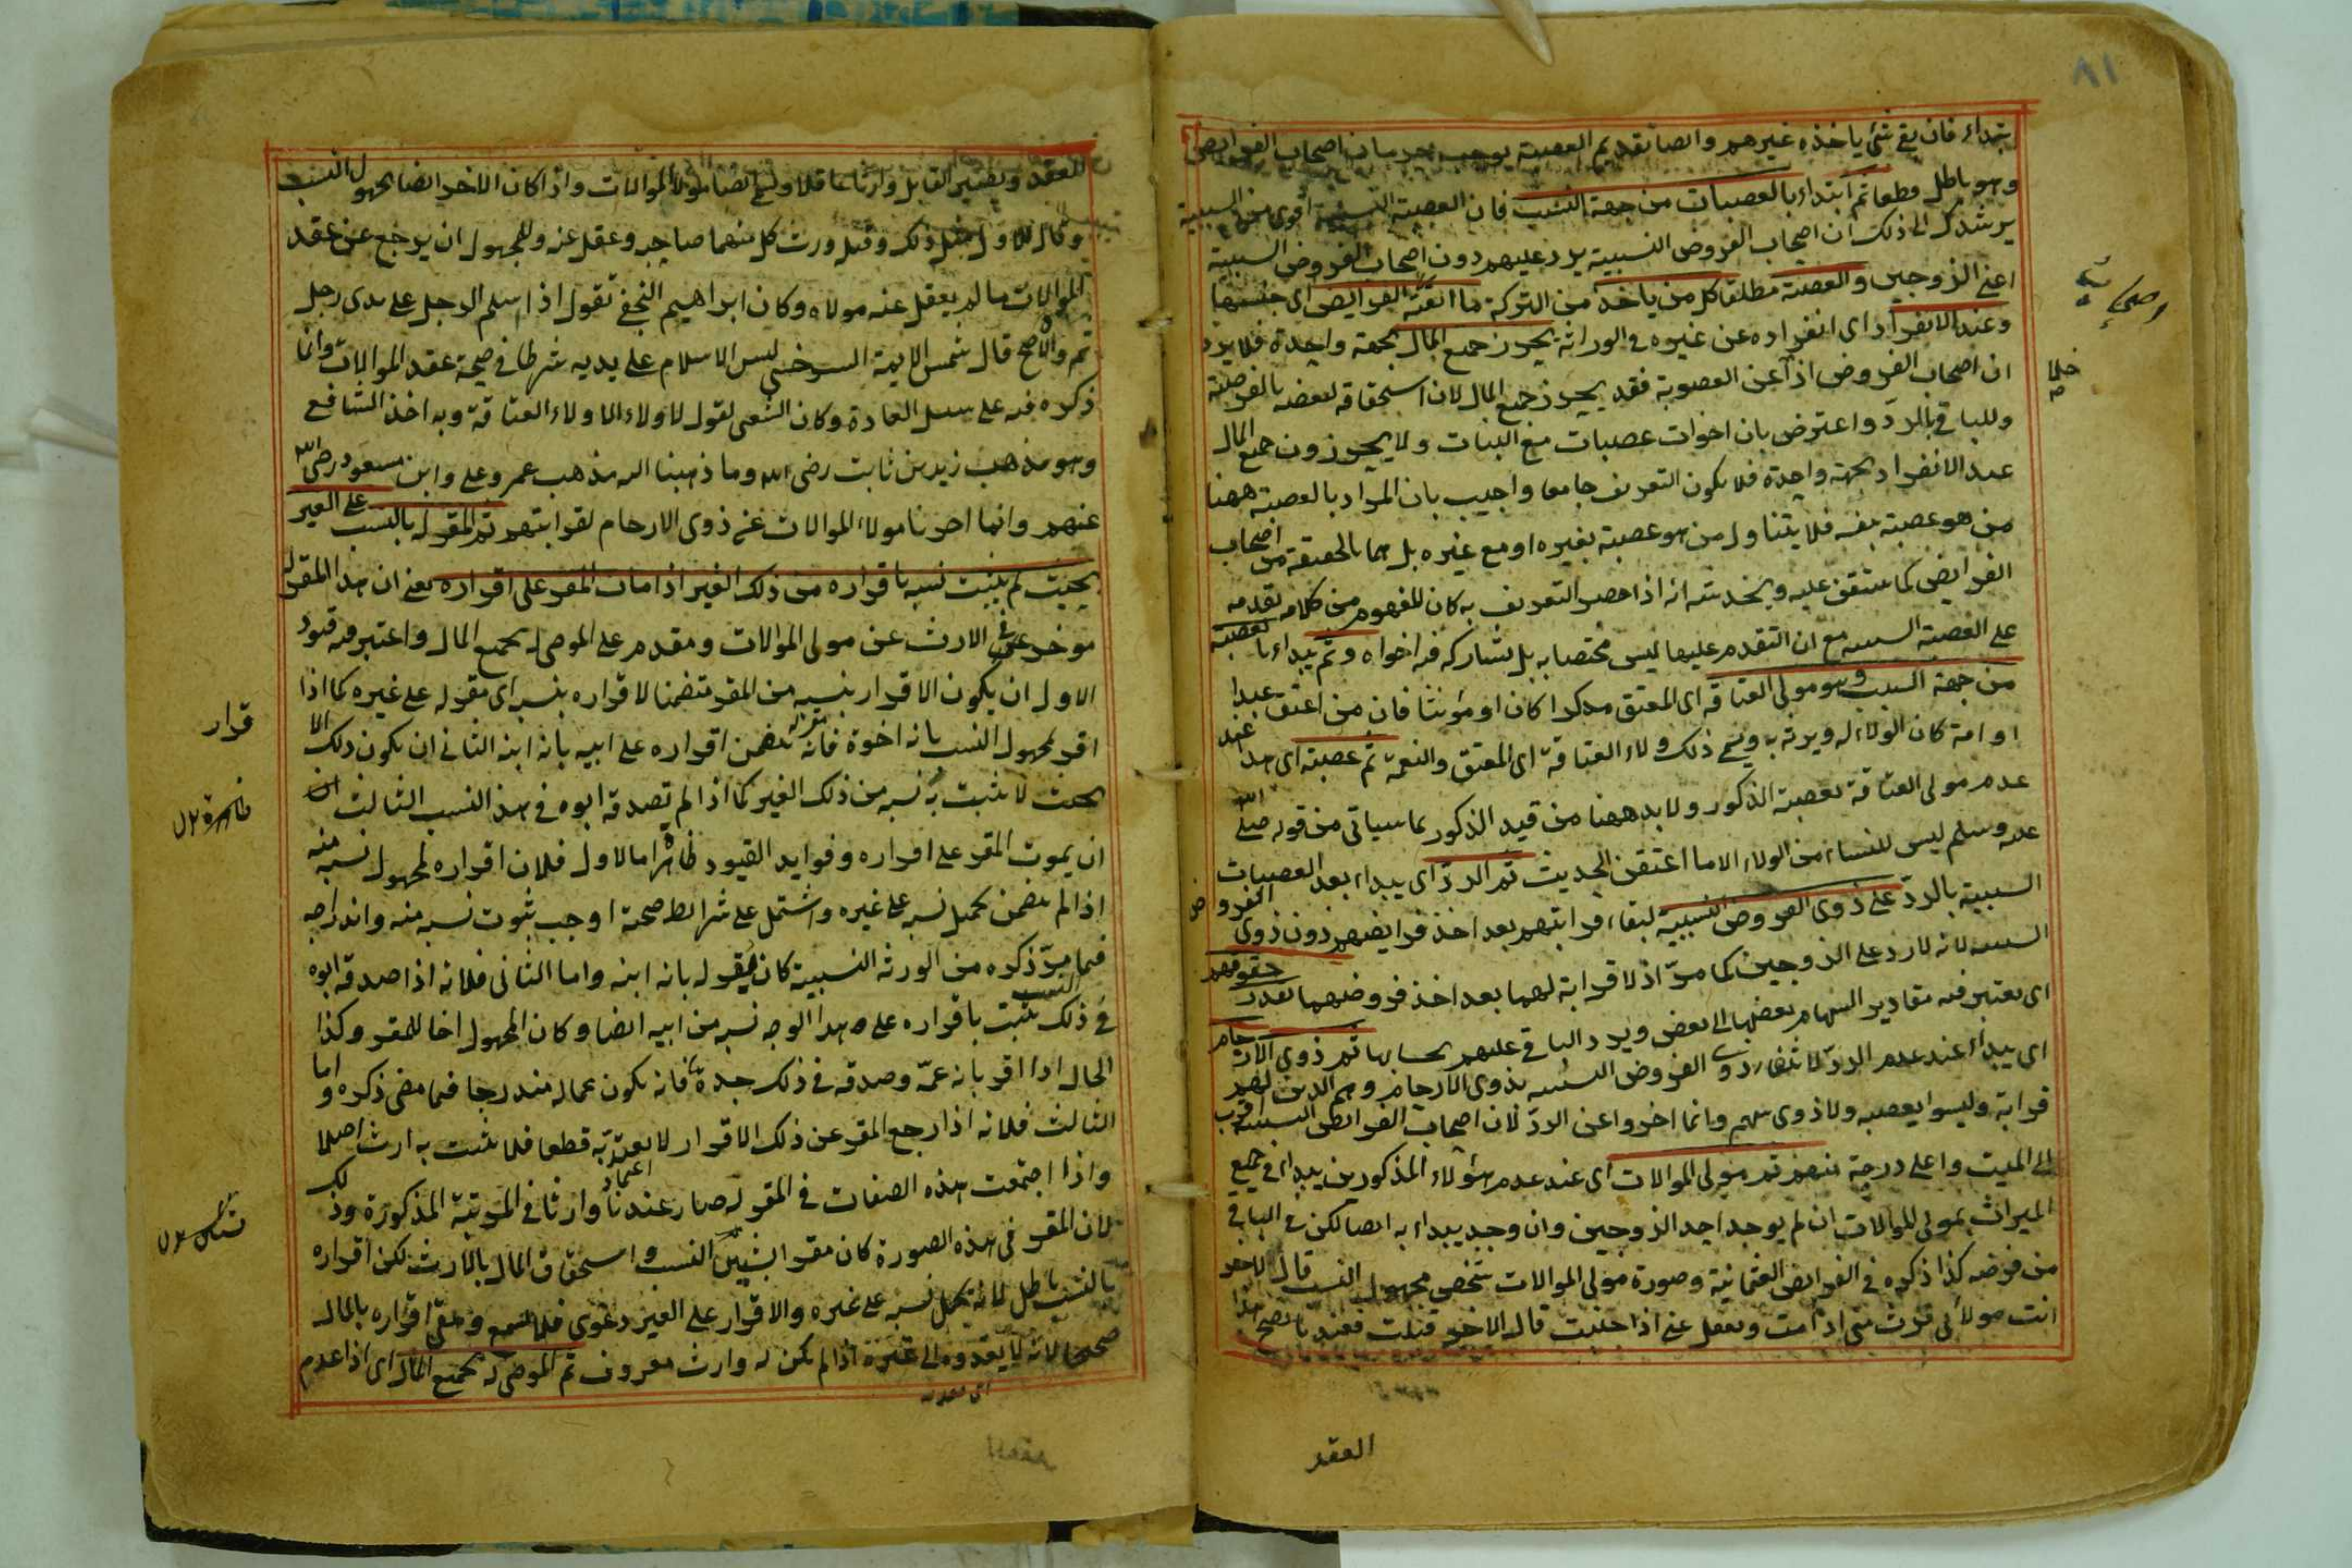 ٨١
بتداء فان بقى شئ ياخذه غيرهم وايضا تقديم العصبة يوجب حرمان اصحاب الفرايض
وهو باطل قطعا ثم ابتداء بالعصبات من جهة النسب فان العصبة النسبية اقوى من السببية
يرشدك الى ذلك ان اصحاب الفروض النسبية يرد عليهم دون اصحاب الفروض السببية
اعنى الزوجين والعصبة مطلقا كل من ياخذ من التركة ما ابقته الفرايض اى جنسها
وعند الانفراد اى انفراده عن غيره فى الوراثة يحرز جميع المال بجهة واحدة فلا يرد
ان اصحاب الفروض اذا عن العصوبة فقد يحرز جميع المال لان استحقاقه لبعضه بالفرضية
وللباقى بالرد واعترض بان اخوات عصبات مع البنات ولا يحرزون جميع المال
عند الانفراد بجهة واحدة فلا يكون التعريف جامعا واجيب بان المراد بالعصبة ههنا
من هو عصبة بنفسه فلا يتناول من هو عصبة بغيره او مع غيره بل هما بالحقيقة من اصحاب
الفرايض كما ستقف عليه ويخدشه انه اذا خص التعريف به كان المفهوم من كلامه تقدمه
على العصبة السببية مع ان التقدم عليها ليس مختصا به بل يشاركه فيه اخواه وثم يبداء بالعصبة
من جهة السبب وهو مولى العتاقة اى المعتق مذكرا كان او مؤنثا فان من اعتق عبدا
او امة كان الولاء له ويرث به ويسمى ذلك ولاء العتاقة اى المعتق والنعمة ثم عصبته اى يبدا عند
عدم مولى العتاقة بعصبته الذكور ولا بد ههنا من قيد الذكور لما سياتى من قوله صلى الله
عليه وسلم ليس للنساء من الولاء الا ما اعتقن الحديث ثم الرد اى يبداء بعد العصبات
السببية بالرد على ذوى الفروض النسبية لبقاء قرابتهم بعد اخذ فرايضهم دون ذوى الفروض
السببية لانه لا رد على الزوجين كما مر اذ لا قرابة لهما بعد اخذ فروضهما بقدر حقوقهم
اى يعتبر فيه مقادير السهام بعضها الى بعض ويرد الباقى عليهم بحسابها ثم ذوى الارحام
اى يبداء عند عدم الرد لانتفاء ذوى الفروض النسبية بذوى الارحام وهم الذين لهم
قرابة وليسوا بعصبة ولا ذوى سهم وانما اخروا عن الرد لان اصحاب الفرايض النسبية اقرب
الى الميت واعلى درجة منهم ثم مولى الموالات اى عند عدم هؤلاء المذكورين يبداء فى جميع
الميراث بمولى الموالات ان لم يوجد احد الزوجين وان وجد يبداء به ايضا لكن فى الباقى
من فرضه كذا ذكره فى الفرايض العثمانية وصورة مولى الموالات شخص مجهول النسب قال لاخر
انت مولائى ترث منى اذا مت وتعقل عنى اذا جنيت قال الاخر قبلت فعندنا يصح هذا
العقد
العقد ويصير القابل وارثا عاقلا ويسمى ايضا مولا الموالات واذا كان الاخر ايضا مجهول النسب
وقال للاول مثل ذلك وقبل ورث كل منهما صاحبه وعقل عنه وللمجهول ان يرجع عن عقد
الموالات ما لم يعقل عنه مولاه وكان ابراهيم النخعى يقول اذا اسلم الرجل على يدى رجل
ثم والاه صح قال شمس الايمة السرخسى ليس الاسلام على يديه شرطا فى صحة عقد الموالات وانما
ذكره فيه على سبيل العادة وكان الشعبى يقول لا ولاء الا ولاء العتاقة وبه اخذ الشافعى
وهو مذهب زيد بن ثابت رضى الله وما ذهبنا اليه مذهب عمر وعلى وابن مسعود رضى الله
عنهم وانما اخرنا مولاء الموالات عن ذوى الارحام لقرابتهم ثم المقر له بالنسب على الغير
بحيث لم يثبت نسبه باقراره من ذلك الغير اذا مات المقر على اقراره يعنى ان هذا المقر له
موخر فى الارث عن مولى الموالات ومقدم على الموصى له بجميع المال واعتبر فيه قيود
الاول ان يكون الاقرار بنسبه من المقر متضمنا لاقراره بنسبه اى مقر له على غيره كما اذا
اقر لمجهول النسب بانه اخوه فانه يتضمن اقراره على ابيه بانه ابنه الثانى ان يكون ذلك الا
بحيث لا يثبت به نسبه من ذلك الغير كما اذا لم تصدقه ابوه فى هذا النسب الثالث
ان يموت المقر على اقراره وفوايد القيود ظاهرة اما الاول فلان اقراره لمجهول نسبه منه
اذا لم يتضمن تحميل نسبه على غيره واشتمل على شرايط صحة اوجب ثبوت نسبه منه واندراجه
فيما مر ذكره من الورثة النسبية كان يقر له بانه ابنه واما الثانى فلانه اذا صدقه ابوه
فى ذلك النسب يثبت باقراره على هذا الوجه نسبه من ابيه ايضا وكان المجهول اخا للمقر وكذا
الحال اذا اقر بانه عمه وصدقه فى ذلك جده فانه يكون عما له مندرجا فيما مضى ذكره واما
الثالث فلانه اذا رجع المقر عن ذلك الاقرار لا يعتد به قطعا فلا يثبت به ارث اصلا
واذا اجتمعت هذه الصفات فى المقر له صار عندنا وارثا فى المرتبة المذكورة وذلك
لان المقر فى هذه الصورة كان مقرا بشيئين النسب واستحقاق المال بالارث لكن اقراره
بالنسب باطل لانه تحميل نسبه على غيره والاقرار على الغير دعوى فلا تسمع وبقى اقراره بالمال
صحيحا لانه لا يعدوه الى غيره اذا لم يكن له وارث معروف ثم الموصى له بجميع المال اى اذا عدم